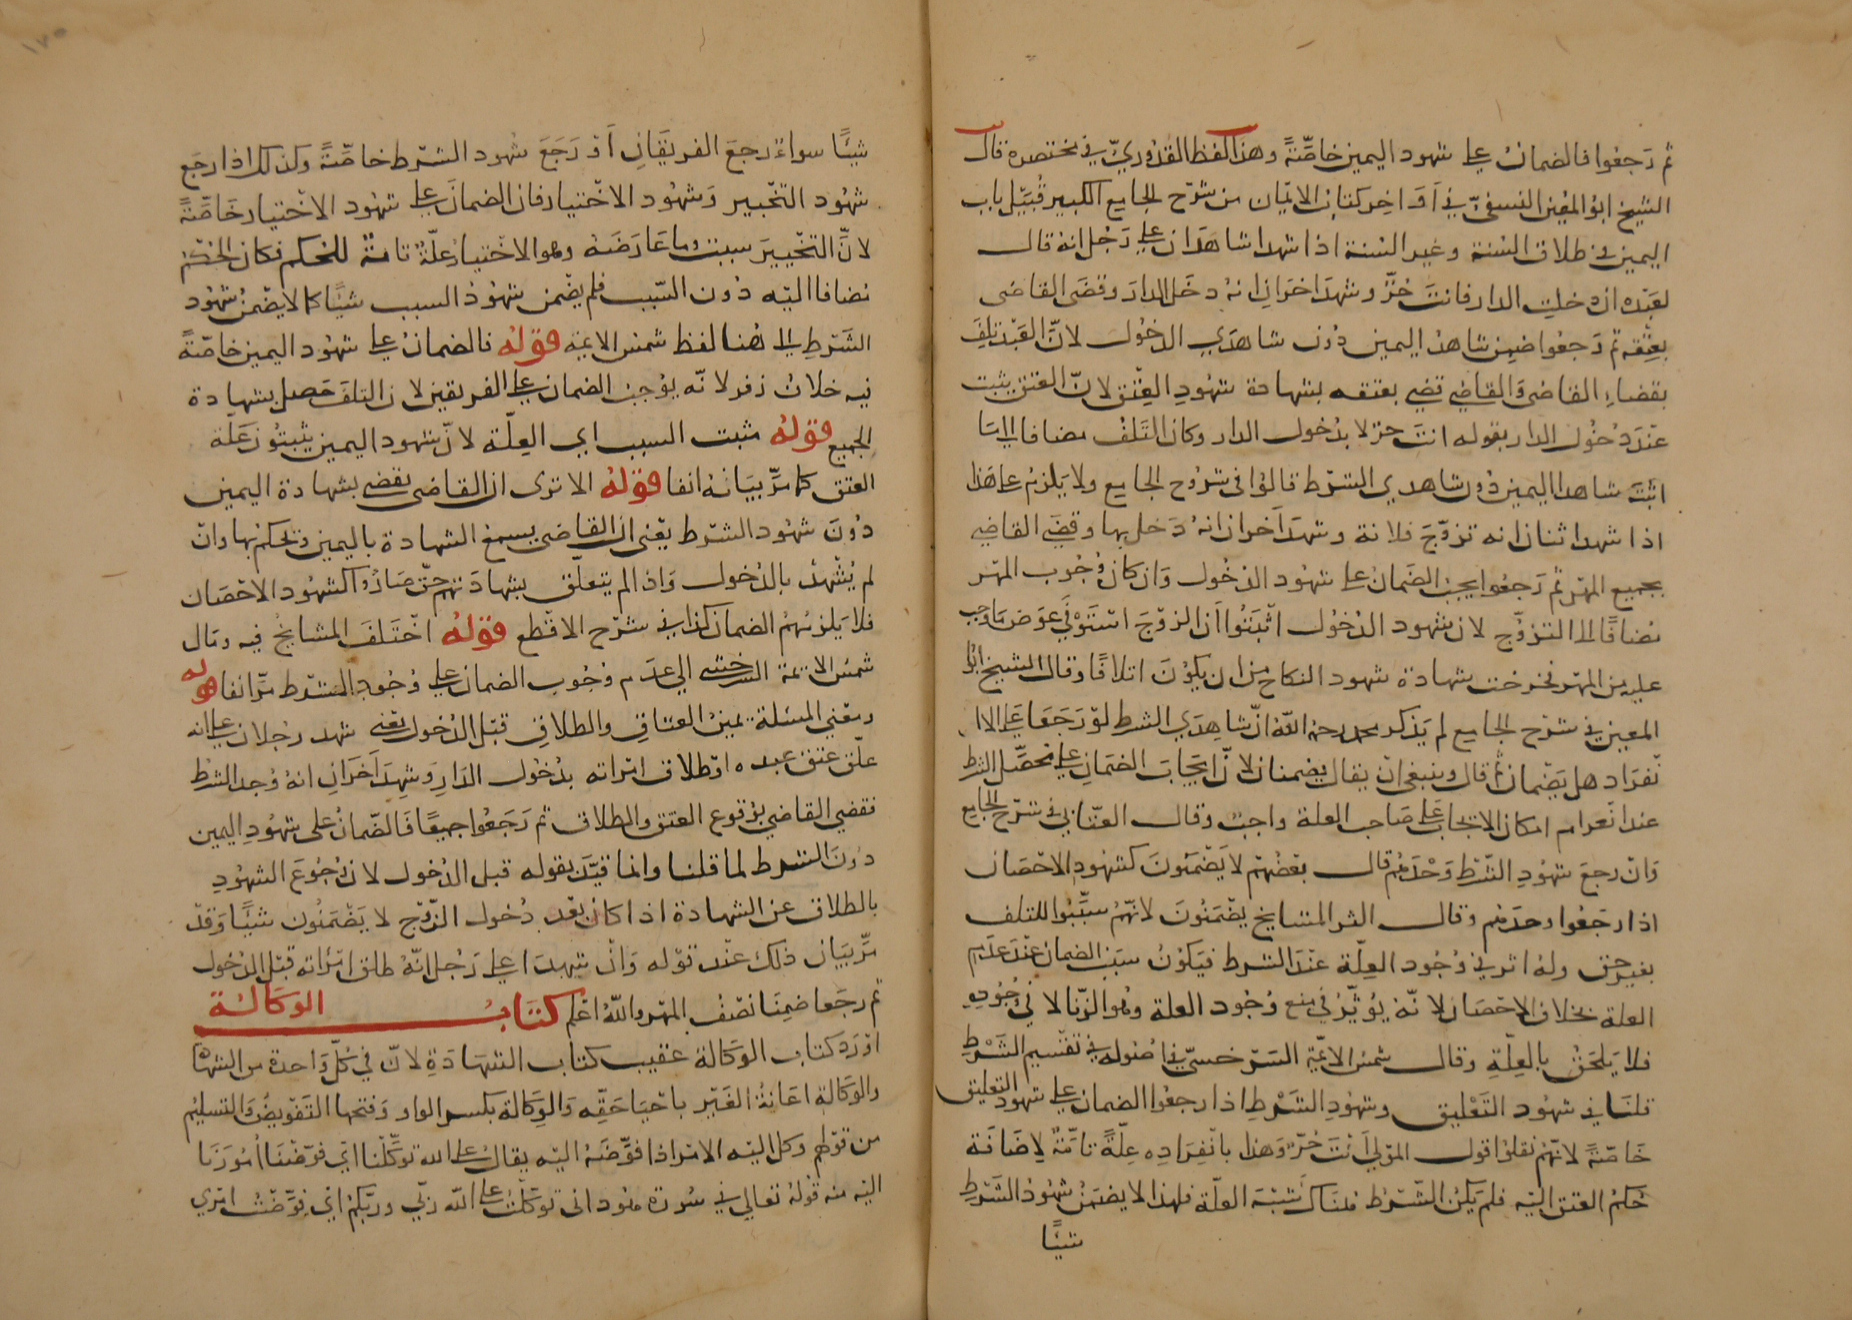 ثم رَجعُوا فالضمان على شهود اليمين خاصّةً وهذا لفظ القدُوريّ في مختصره قال
الشيخ ابو المعين النسفيّ في أوَاخِر كتاب الايمان من شرح الجامع الكبير قُبيل باب
اليمين في طلاق السُنة وغير السُنة اذا شهدا شاهدان على رَجُل انه قال
لعَبْده ان دخلت الدار فانت حُرٌّ وشهدَ اخرَانِ انهُ دخَل الدارَ وقضَى القاضى
بعِتقه ثم رَجعُوا ضمِن شاهدُ اليمين دُون شاهدَي الدخُول لانّ العَبْد تلِفَ
بقضاءِ القاضى وَالقاضي قضي بعتقه بشهادة شهُودِ العِتْق لانّ العتق يثبت
عنْدَ دُخُول الدار بقوله انتَ حرّ لا بدُخول الدار وكان التلفُ مضافا الى مَا
اثبتَ شاهدا اليمين دُون شاهدي الشرْط قالوُا فى شرُوح الجامع ولا يلزمُ على هَذا
اذا شهد اثنان انه تزوّجَ فلانة وشهدَ آخران انهُ دَخل بها وقضَي القاضي
بجميع المهْر ثم رَجعُوا يجبُ الضمانُ على شهُود الدخُول وَان كان وُجُوب المهْر
مضافًا الى التزوُّج لان شهود الدُخُول اثْبَتُوا اَنّ الزوْجَ اسْتَوْفى عوَض مَا وجب
عليه من المهْر فخرجت شهادة شهود النكاح من ان يكوُنَ اتلافًا وقال الشيخ ابوُ
المعين في شرْح الجامع لم يَذكر محمد رحمهُ اللّهُ انّ شاهِدَي الشرط لوْ رَجَعَا على الا
نفراد هل يَضْمنان ثم قال وينبغى ان يقال يضمنان لانّ ايجَابَ الضمَانِ على محصّل الشرط
عند انْعدام امكان الايجاب عَلى صَاحب العلة واجبٌ وقال العتّابي في شرْح الجامع
وَان رجعَ شهُودِ الشَّرْط وَحْدَهُم قال بعْضهُم لا يَضْمَنونَ كشهُودِ الاحْصَان
اذا رجَعُوا وحدَهم وقال اكثر المشايخ يضْمَنُونَ لانّهُمْ سَبَّبُوا للتلف
بغير حق ولهُ اثر في وُجُود العِلّة عنْدَ الشرط فيَكوُنُ سَبَب الضمان عنْدَ عدَم
العلة بخلاف الاحْصَان لانّه يُؤثّرُ في منع وُجُود العلة وهُو الزنا لا في وُجُودِهِ
فلا يَلحَقُ بالعِلّةِ وقال شمس الائمّة السَرْخسيّ في اصُوله في تقسيم الشَرْطِ
قلنَا في شهُود التَعْليق وشهُودِ الشَرْطِ اذا رجعُوا الضمان على شهُود التعليق
خَاصّةً لانّهُمْ نقلوُا قول المَوْلي اَنْتَ حُرٌّ وَهذا بانْفِرَادِه عِلّةٌ تامّةٌ لاِضَافَة
حُكمُ العتق اليْه فلمْ يَكن الشَّرْط هُنَاكَ شَبَهَ العلّة فلهذا لا يضمَنُ شهُودُ الشَرْطِ
شيئًا
شيئًا سواءٌ رجعَ الفريقَانِ اَوْ رَجَعَ شهُود الشرط خاصّةً وكذلك اذا رجَع
شهُود التخْيير وَشهُود الاخْتيار فان الضمانَ على شهُود الاخْتيار خَاصّةً
لانَّ التخْييرَ سببٌ وما عَارَضَهُ وهُو الاخْتيارُ علّةٌ تامّةٌ للحُكم فكان الحُكْمُ
مُضافا اليْه دُون السّبب فلم يضْمن شهُودُ السبب شيئًا كما لا يضْمَنُ شهُود
الشَرْطِ الى هُنا لفظ شمْس الائمّة قوْلهُ فالضمانُ على شهُود اليمين خاصّةً
فيه خلاف زفر لانّه يوُجبُ الضمان على الفريقين لان التلفَ حَصل بشهادة
الجميع قوْلهُ مثبت السبب اي العِلّة لانّ شهُود اليمين يثبتُونَ علة
العتق كما مرَّ بيَانهُ انفا قوْلهُ الا ترى ان القاضى يقضي بشهادة اليمين
دُونَ شهُود الشرْط يعْنى ان القاضى يسمعُ الشهادة باليمين ويحكمُ بها وانْ
لم يُشْهدْ بالدُخول وَاذا لم يتعلّق بشهادَتهم حقٌ صَارُوا كشهُود الاحْصَان
فلا يَلزمُهُمُ الضمان كذا في شرْح الاقْطع قوْلهُ اخْتَلفَ المشايخُ فيه ومَال
شمسُ الائمّة السَرخسي الى عدَم وُجُوب الضمان على وُجُودِ الشرْط مرّ انفا قوله
ومعْني المسْئلة يمينُ العتاقِ والطلاقِ قبْل الدُخول يعْني شهد رجُلان على انه
علّق عتق عبده اوْ طلاق امْراته بدُخُول الدَارِ وَشهِدَ آخَرَانِ انهُ وُجدَ الشرْط
فقضي القاضي بوُقوع العتق والطلاق ثم رَجَعُوا جميعًا فَالضّمانُ على شهُودِ اليمين
دُونَ الشرط لما قلنا وانما قيّدَ بقوله قبل الدُخول لان رُجُوعَ الشهُودِ
بالطلاق عن الشهادة اذا كان بعْد دُخول الزّوْج لا يَضْمَنُون شيْئًا وَقدْ
مرَّ بيَان ذلك عنْد قوْله وَانْ شهدَا على رَجُل انّهُ طلق امْرَاته قبْل الدُخول
ثم رجَعا ضمِنَا نصْفُ المهْر واللّهُ اعْلم كتَابُ الوَكَالَة
اوْرَدَ كتاب الوَكالة عقيب كتاب الشهَادَةِ لانّ في كلّ وَاحدة من الشهادة
والوَكالة اعَانَةُ الغَيْر باحْيَاء حَقّه وَالوِكَالة بكسر الواو وَفتحها التَفْويضُ وَالتسليمُ
من قوْلهم وكل اليْه الامْرَ اذا فوَّضَهُ اليْه يقالُ على اللّه توَكّلْنا ايْ فوّضْنَا اُموُرَنَا
اليْه منه قوْلهُ تعالي في سُورَة هُود انى توَكّلْتُ على اللّه ربّي وربّكمُ ايْ فوَّضْتُ امْري